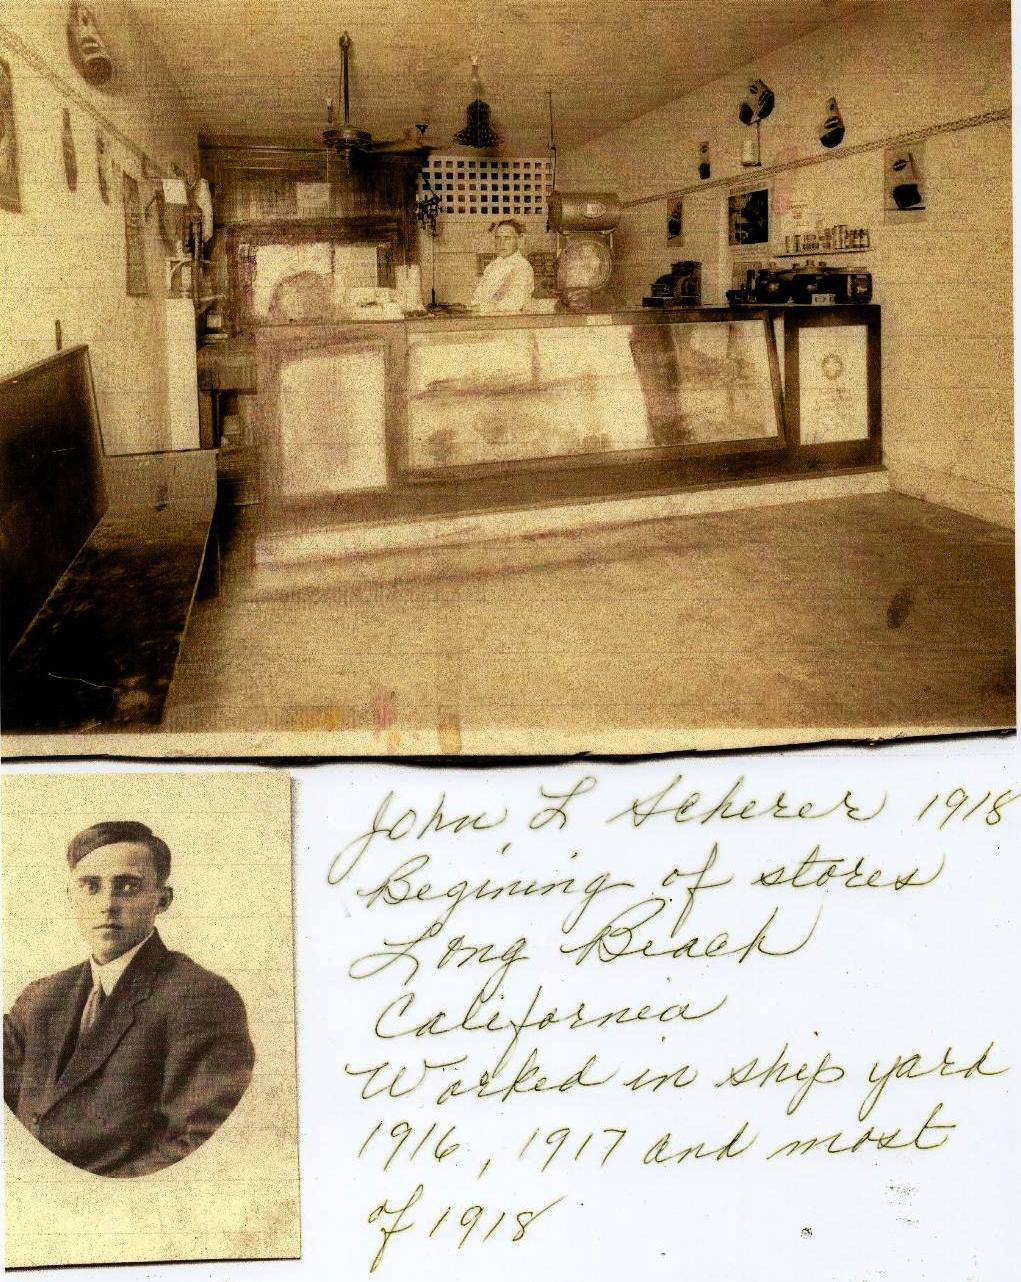 John, L Scherer 1918
Begining of stores
Long Beach
California
Worked in ship yard
1916, 1917 and most
of 1918